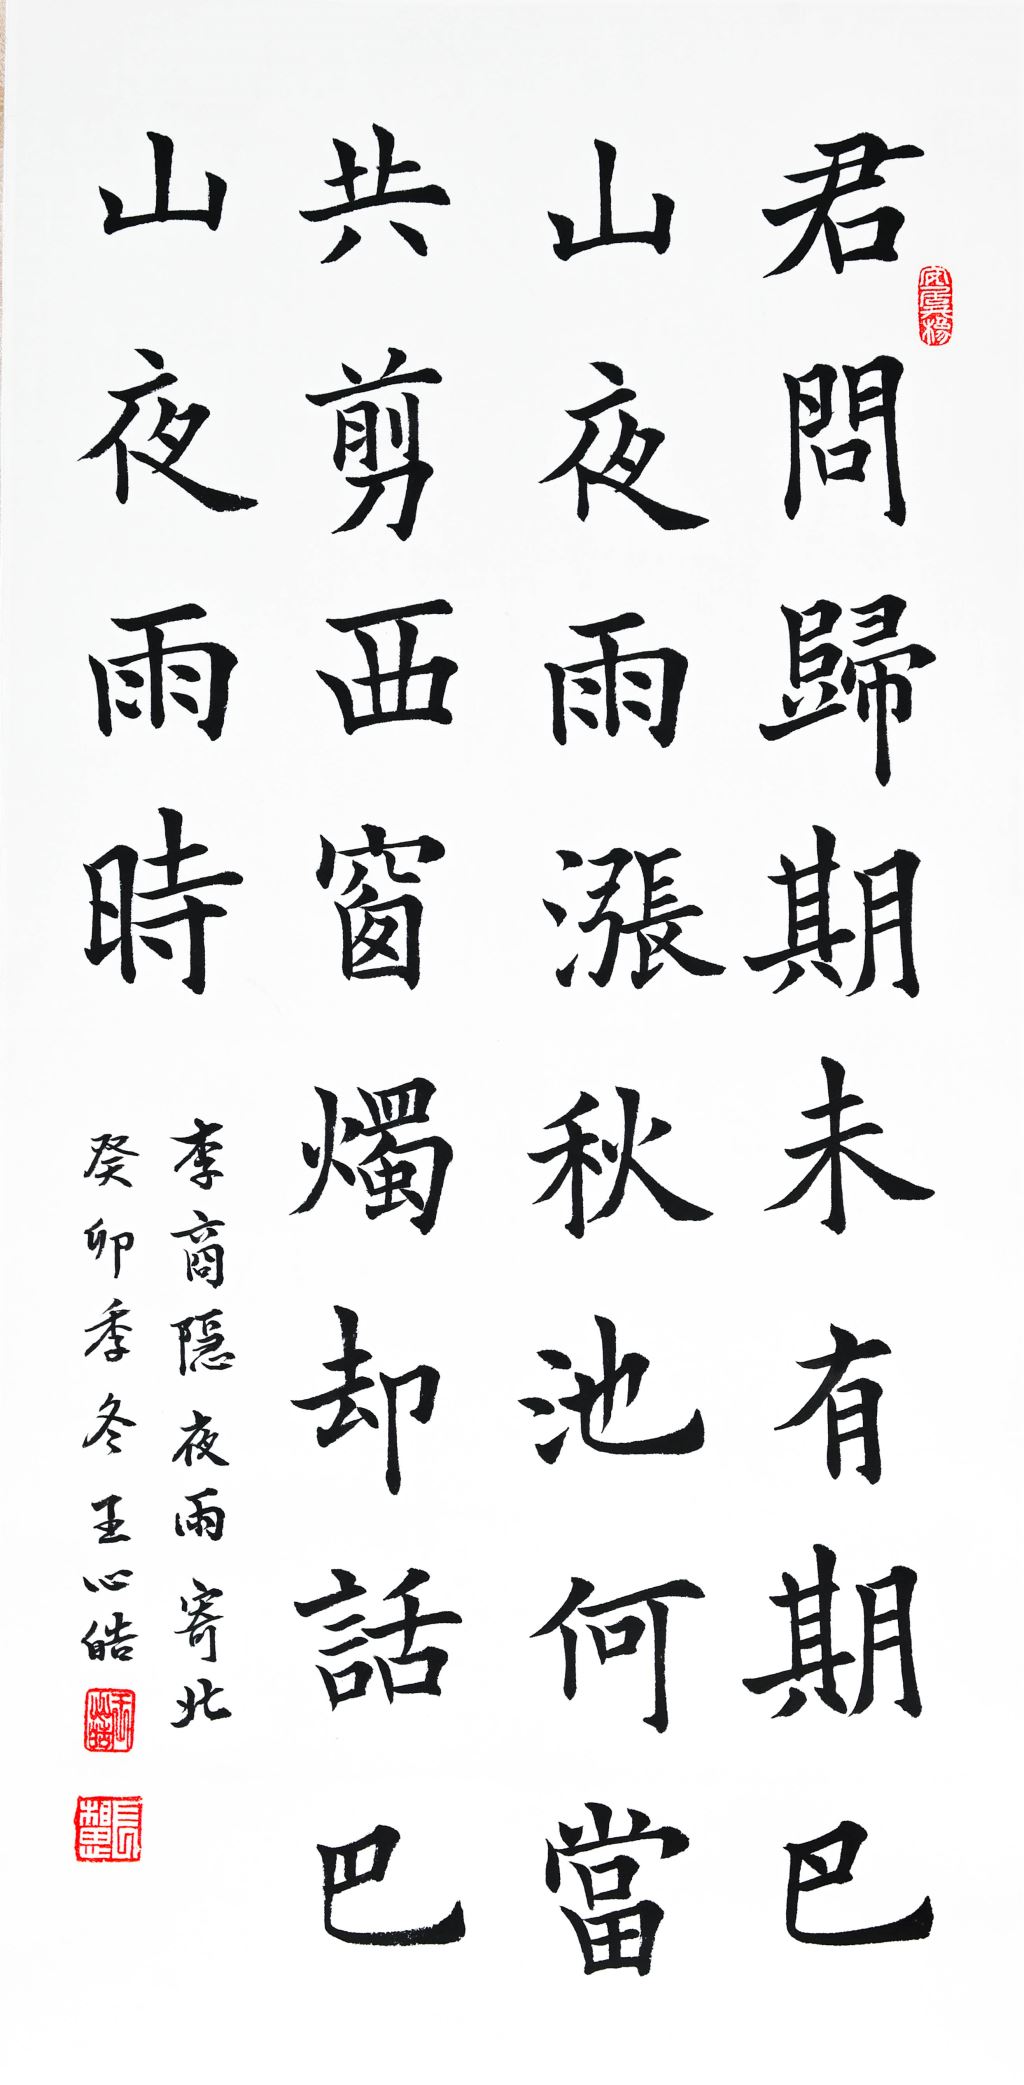 君問歸期未有期巴
山夜雨漲秋池何當
共剪西窗燭却話巴
山夜雨時
李商隐夜雨寄北
癸卯季冬王心皓